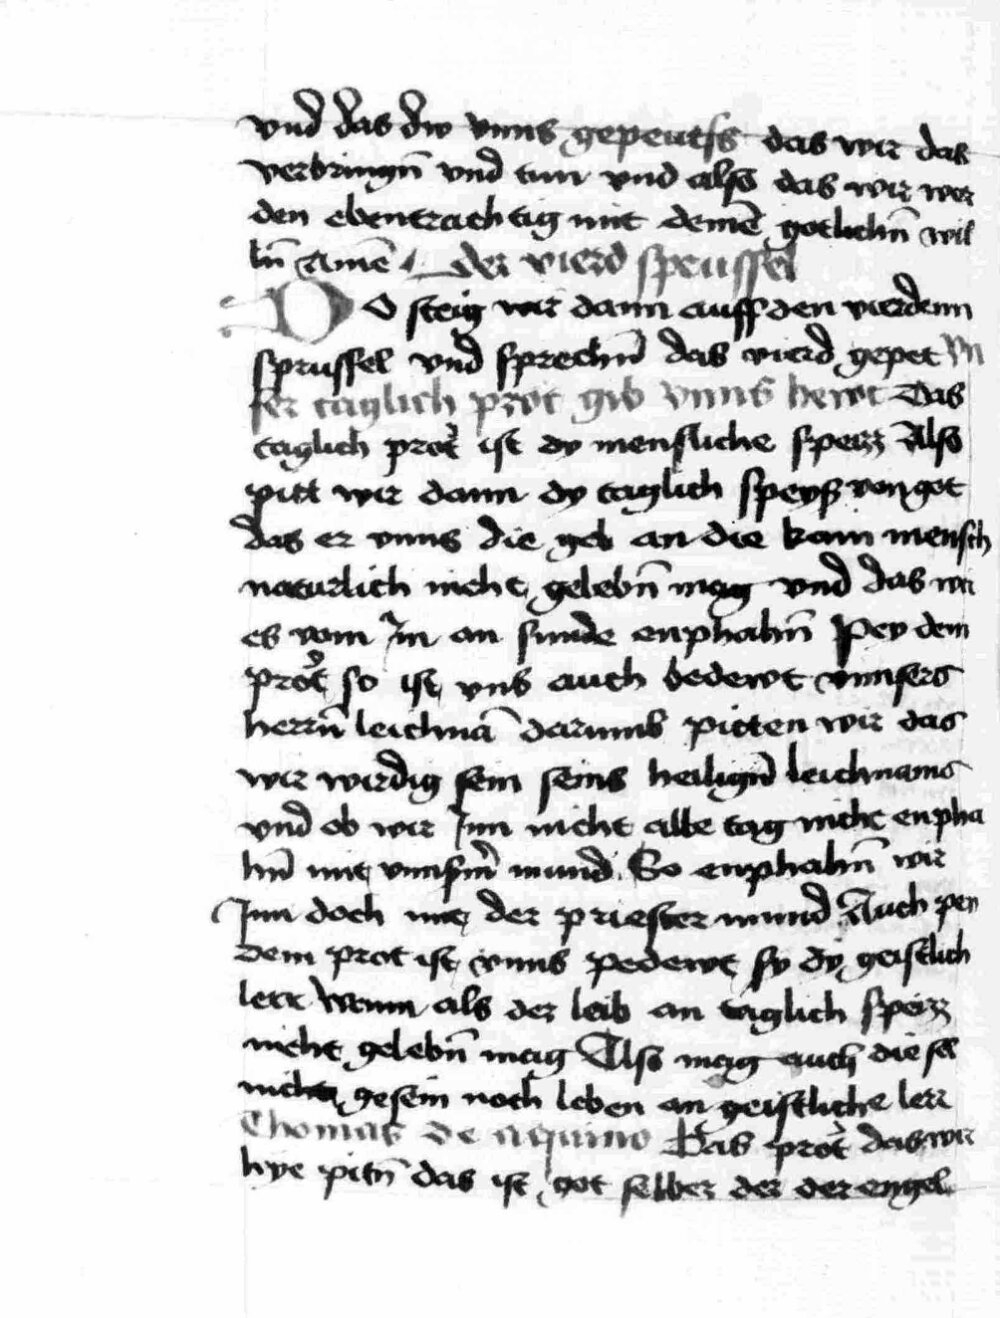 vnd das dw vnns gepeutss das wir das
verbringn̄ vnd tun vnd also das wir wer
den ebentrachtig mit deinē gotlichn̄ wil
ln̄ Amē der vierd sprussel
So steig wir dann auff den vierdenn
sprussel vnd sprechn̄ das vierd gepet Vn
ser taglich prot gib vnns hewt Das
taglich prot ist dy mensliche speizz Also
pitt wir dann dy taglich speyß von got
das er vnns die geb an die kain mensch
naturlich nicht gelebn̄ mag vnd das wir
es vom Im an sunde enphahn̄ Pey dem
prot so ist vns auch bedewt vnnsers
herrn̄ leichnā darumb pitten wir das
wir wirdig sein seins heilign̄ leichnams
vnd ob wir Inn nicht alle tag nicht enpha
hn̄ mit vnnsm̄ mund So enphahn̄ wir
Inn doch mit der priester mund Auch pey
dem prot ist vnns pedewt sy dy geistlich
lerr Wenn als der leib an taglich speizz
nicht gelebn̄ mag Also mag auch die sel
nicht gesein noch leben an geistliche lerr
Thomas de aquino Das prot das wir
hye pitn̄ das ist got selber der der engel